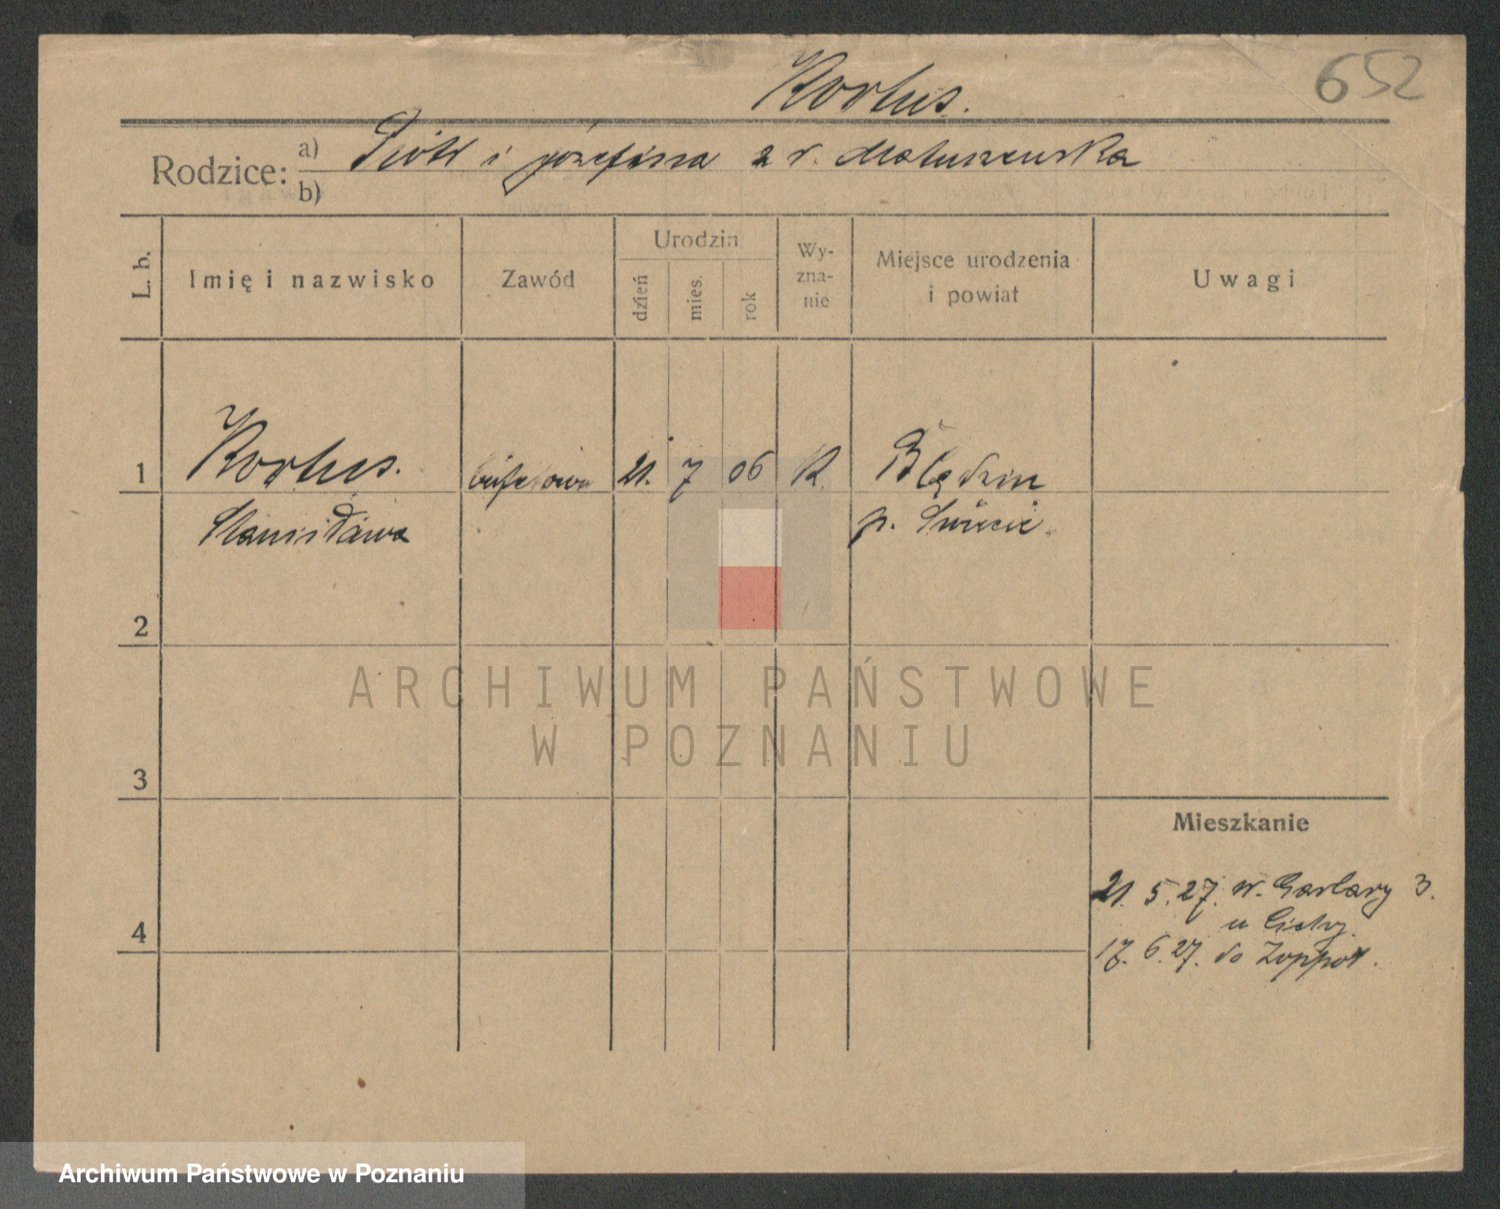 Kortus.
652
Rodzice: a) Piotr i Józefina z r. Matuszewska
b)
L. b.
Imię i nazwisko
Zawód
Urodzin
dzień
mies.
rok
Wy-
zna-
nie
Miejsce urodzenia
i powiat
Uwagi
1 Kortus. bufetowa 21. 7 06 R. Błędzim
Stanisława p. Świecie.
2
ARCHIWUM PAŃSTWOWE
W POZNANIU
3
Mieszkanie
21. 5. 27. W. Garbary 3.
u
4
17. 6. 27. do Zoppot.
Archiwum Państwowe w Poznaniu